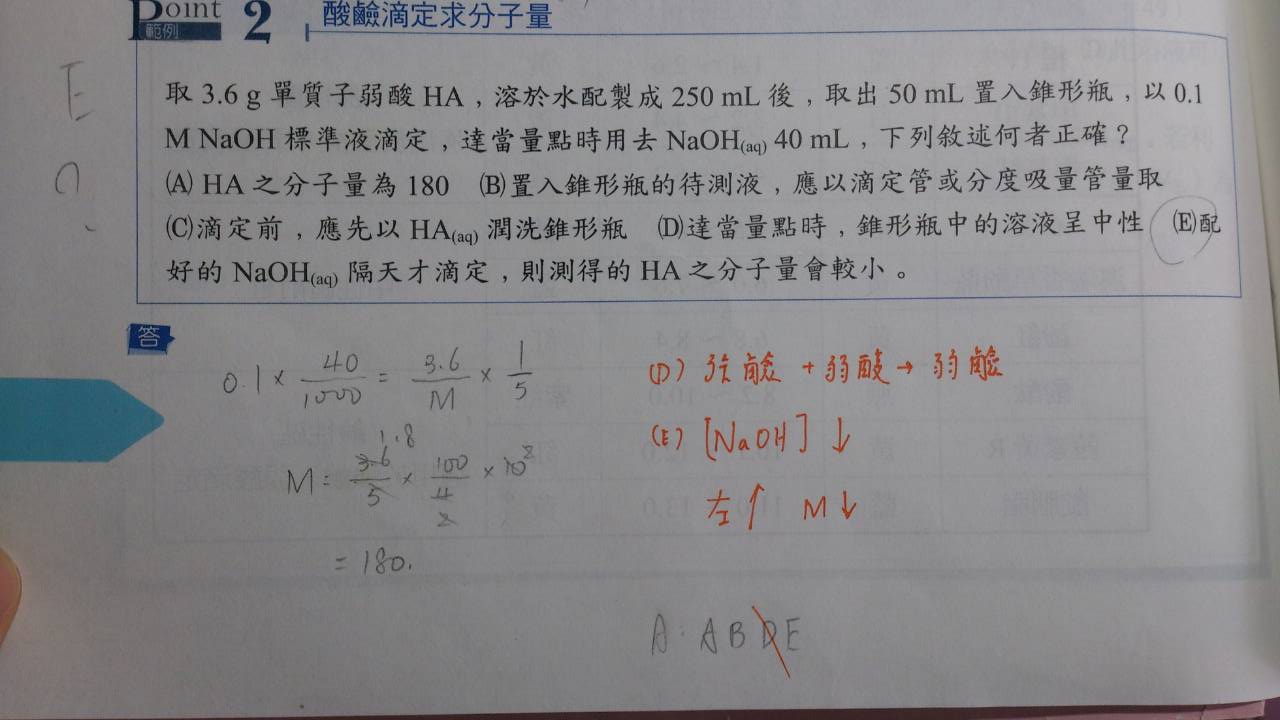 Point 範例 2 酸鹼滴定求分子量
取 3.6 g 單質子弱酸 HA，溶於水配製成 250 mL 後，取出 50 mL 置入錐形瓶，以 0.1
M NaOH 標準液滴定，達當量點時用去 NaOH(aq) 40 mL，下列敘述何者正確？
(A) HA 之分子量為 180 (B)置入錐形瓶的待測液，應以滴定管或分度吸量管量取
(C)滴定前，應先以 HA(aq) 潤洗錐形瓶 (D)達當量點時，錐形瓶中的溶液呈中性 (E)配
好的 NaOH(aq) 隔天才滴定，則測得的 HA 之分子量會較小。
E
答
0.1 × 40/1000 = 3.6/M × 1/5
M = 3.6/5 × 100/4 × 10
1.8
2
= 180.
(D) 強鹼 + 弱酸 → 弱鹼
(E) [NaOH] ↓
左↑ M↓
A: ABDE